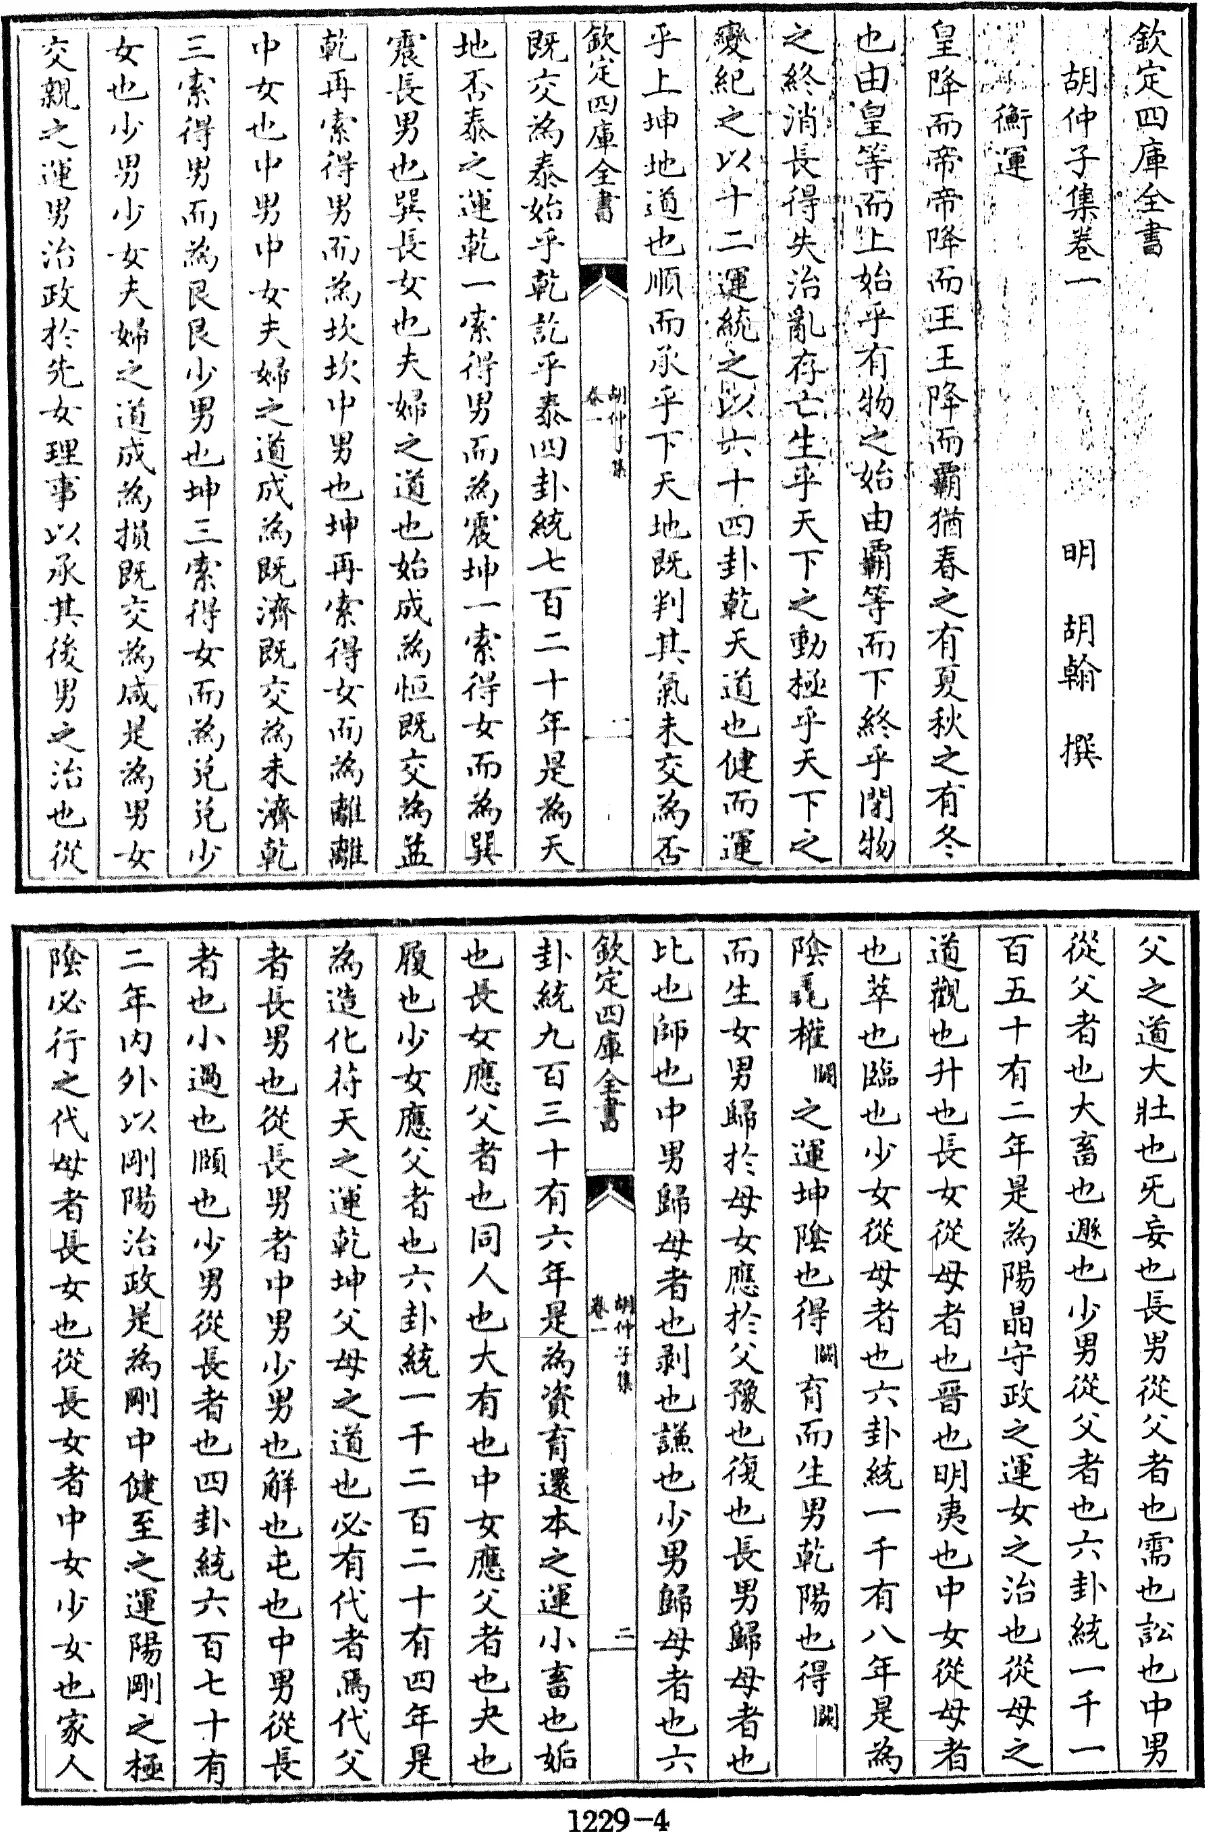 欽定四庫全書
胡仲子集卷一
明 胡翰 撰
衡運
皇降而帝帝降而王王降而霸猶春之有夏秋之有冬
也由皇等而上始乎有物之始由霸等而下終乎閉物
之終消長得失治亂存亡生乎天下之動極乎天下之
變紀之以十二運統之以六十四卦乾天道也健而運
乎上坤地道也順而承乎下天地既判其氣未交為否
欽定四庫全書
胡仲子集
卷一
一
既交為泰始乎乾訖乎泰四卦統七百二十年是為天
地否泰之運乾一索得男而為震坤一索得女而為巽
震長男也巽長女也夫婦之道也始成為恒既交為益
乾再索得男而為坎坎中男也坤再索得女而為離離
中女也中男中女夫婦之道成為既濟既交為未濟乾
三索得男而為艮艮少男也坤三索得女而為兌兌少
女也少男少女夫婦之道成為損既交為咸是為男女
交親之運男治政於先女理事以承其後男之治也從
父之道大壯也旡妄也長男從父者也需也訟也中男
從父者也大畜也遯也少男從父者也六卦統一千一
百五十有二年是為陽晶守政之運女之治也從母之
道觀也升也長女從母者也晉也明夷也中女從母者
也萃也臨也少女從母者也六卦統一千有八年是為
陰毳權闕之運坤陰也得闕育而生男乾陽也得闕
而生女男歸於母女應於父豫也復也長男歸母者也
比也師也中男歸母者也剥也謙也少男歸母者也六
欽定四庫全書
胡仲子集
卷一
二
卦統九百三十有六年是為資育還本之運小畜也姤
也長女應父者也同人也大有也中女應父者也夬也
履也少女應父者也六卦統一千二百二十有四年是
為造化符天之運乾坤父母之道也必有代者焉代父
者長男也從長男者中男少男也解也屯也中男從長
者也小過也頤也少男從長者也四卦統六百七十有
二年内外以剛陽治政是為剛中健至之運陽剛之極
陰必行之代母者長女也從長女者中女少女也家人
1229-4